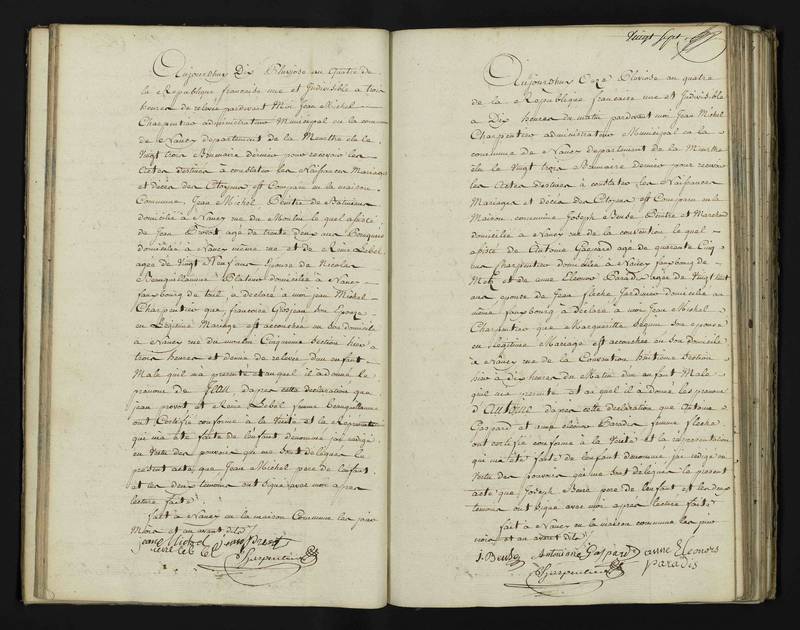 Aujourdhuy Dix Pluviose au quatre de
la Republique francaise une et Indivisible a trois
heures de relevée pardevant Moi Jean Michel
Charpentier administrateur Municipal en la commune
de Nancy departement de la Meurthe élu le
Vingt trois Brumaire dernier pour recevoir les
Actes destinés a constater les Naissances Mariages
et décès des Citoyens est Comparu en la maison
Commune, Jean Michel Peintre de Batimens
domicilié à Nancy rue du Moulin le quel assisté
de Jean Provot agé de trente deux ans
domicilié a Nancy même rue et de Reine Lebel
agée de Vingt Neuf ans Epouse de Nicolas
domicilié à Nancy
faubourg de toul, a déclaré à moi jean Michel
Charpentier que francoise Grosjean Son Epouse
en Légitime Mariage est accouchée en Son domicile
a Nancy rue du moulin Cinquieme Section hier a
trois heures et demie de relevée d'un enfant
Male quil ma presenté et auquel il a donné le
prenom de Jean dapres cette declaration que
jean provot et Reine Lebel femme
ont Certifié conforme a la Verité et la Représentation
qui ma été faite de l'enfant denommé j'ai redigé
en Vertu des pouvoirs qui me Sont délégués le
présent acte que Jean Michel pere de l'enfant
et les deux temoins ont Signé avec moi apres
lecture faite
fait à Nancy en la maison Commune les jour
Mois et an avant dits
jean Michel jean Provot
Charpentier
Vingt Sept
Aujourdhuy Onze Pluviose au quatre
de la Republique francaise une et Indivisible
a Dix heures du matin pardevant moi Jean Michel
Charpentier administrateur Municipal en la
commune de Nancy departement de la Meurthe
élu le Vingt trois Brumaire dernier pour recevoir
les Actes destinés à constater les Naissances
Mariages et décès des Citoyens est Comparu en la
Maison commune Joseph Peintre et Marchand
domicilié a Nancy rue de la convention le quel
assisté de Antoine Gaspard agé de quarante Cinq
ans Charpentier domicilié à Nancy faubourg de
Metz et de anne Eleonor Paradis agée de Vingt huit
ans epouse de Jean fleche Jardinier domicilié au
même faubourg a déclaré a moi Jean Michel
Charpentier que Marguerite son epouse
en Légitime Mariage est accouchée en Son domicile
à Nancy rue de la Convention huitieme Section
hier à Dix heures du Matin d'un enfant Male
quil ma presenté et au quel il à donné les prenoms
d'Antoine dapres cette declaration que Antoine
Gaspard et anne eleonor Paradis femme fleche
ont certifié conforme à la Verité et la représentation
qui ma été faite de l'enfant denommé j'ai redigé en
Vertu des pouvoirs qui me Sont délégués le present
acte que Joseph pere de l'enfant et les deux
temoins ont Signé avec moi après lecture faite
fait à Nancy en la maison commune les jour
mois et an avant dits
Antoine Gaspard anne Eleonors
paradis
Charpentier